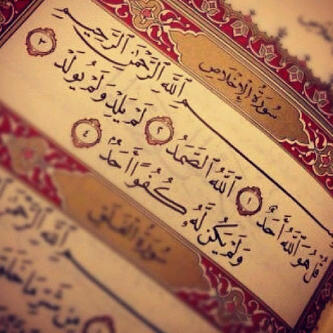 سُورَةُ الإِخْلَاصِ
بِسْمِ اللَّهِ الرَّحْمَٰنِ الرَّحِيمِ
قُلْ هُوَ اللَّهُ أَحَدٌ ١ اللَّهُ الصَّمَدُ ٢ لَمْ يَلِدْ وَلَمْ يُولَدْ ٣
وَلَمْ يَكُن لَّهُ كُفُوًا أَحَدٌ ٤
سُورَةُ الفَلَقِ
بِسْمِ اللَّهِ الرَّحْمَٰنِ
مِن شَرِّ مَا خَلَقَ